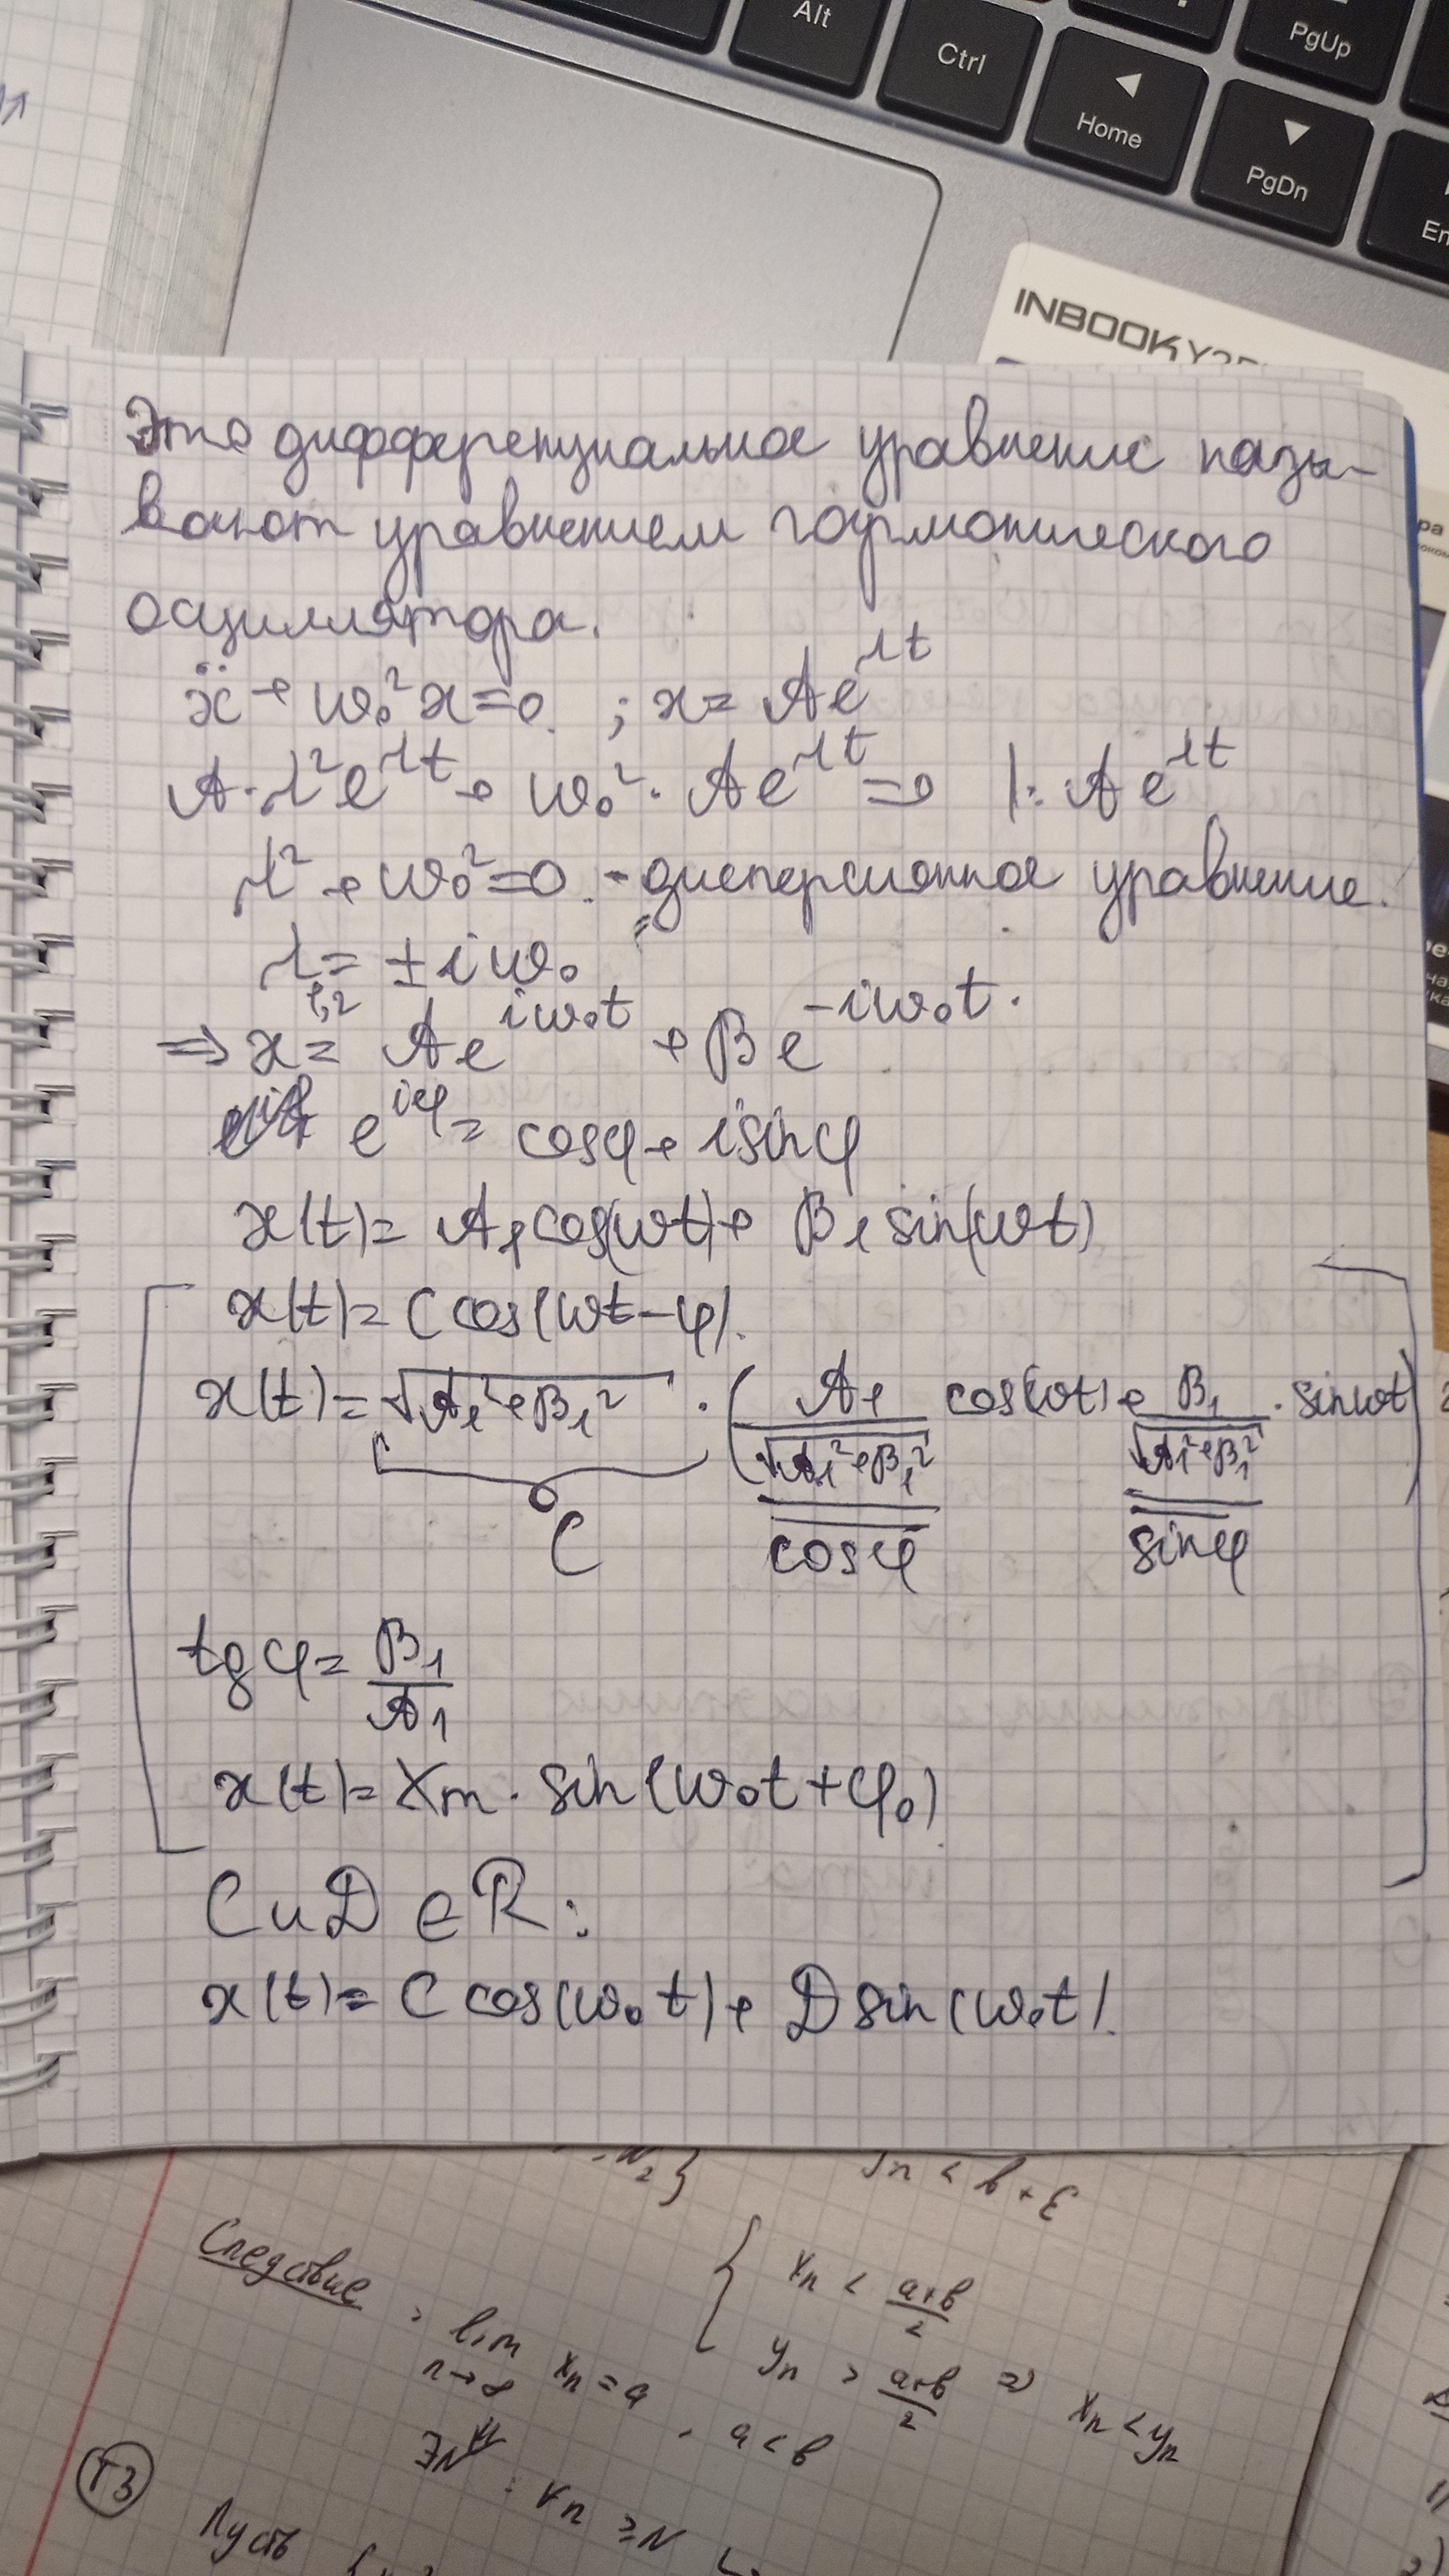 Alt
Ctrl
Home
PgUp
PgDn
INBOOK Y2
Это дифференциальное уравнение назы-
вают уравнением гармонического
осциллятора.
ẍ + ω₀²x = 0 ; x = Ae^λt
A·λ²e^λt + ω₀²·Ae^λt = 0 |: Ae^λt
λ² + ω₀² = 0 - дисперсионное уравнение.
λ₁,₂ = ± iω₀
⇒ x = Ae^iω₀t + Be^-iω₀t.
e^iφ = cosφ + isinφ
x(t) = A₁cos(ωt) + B₁sin(ωt)
x(t) = C cos(ωt - φ).
x(t) = √(A₁² + B₁²) · (A₁/√(A₁² + B₁²) cos(ωt) + B₁/√(A₁² + B₁²) · sinωt)
C cosφ sinφ
tgφ = B₁/A₁
x(t) = Xm · sin(ω₀t + φ₀)
C и D ∈ R:
x(t) = C cos(ω₀t) + D sin(ω₀t).
yn < b + ε
Следствие: lim n→∞ xn = a, a < b
{ xn < (a+b)/2
yn > (a+b)/2 ⇒ xn < yn
∃N : ∀n ≥ N
T3
Пусть